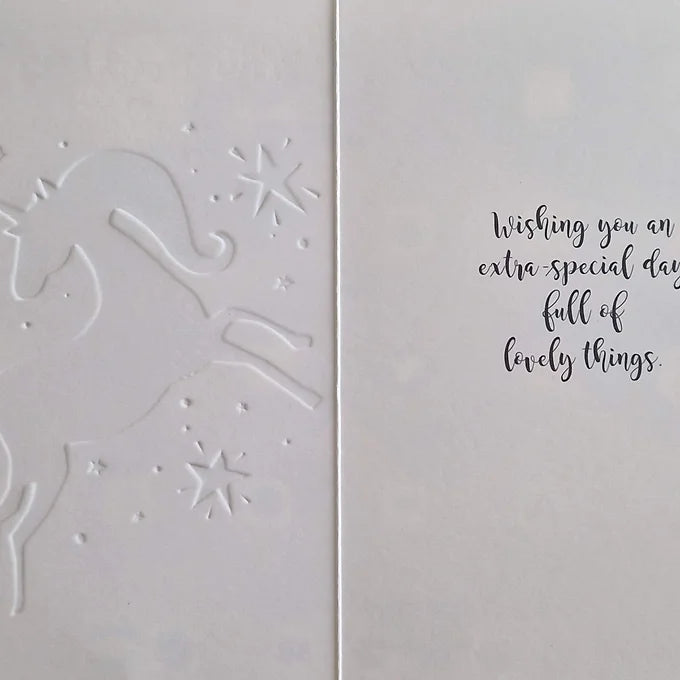 Wishing you an
extra-special day
full of
lovely things.